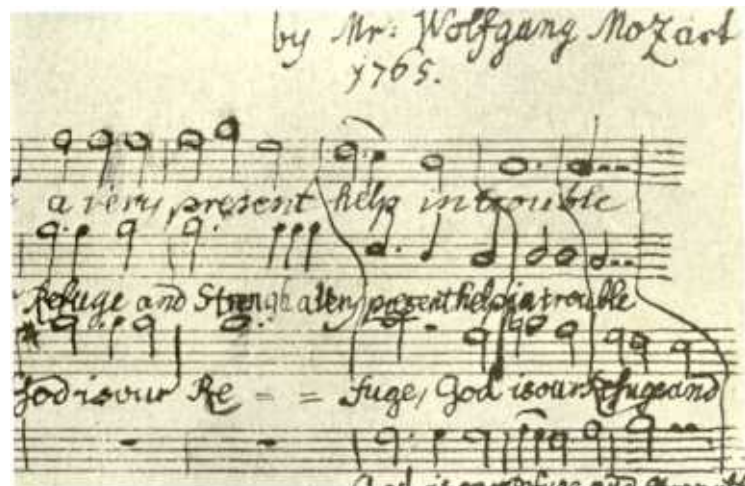 by Mr: Wolfgang Mozart
1765.
a very present help in trouble
Refuge and Strength a very present help in trouble
God is our Re = = fuge, God is our Refuge and
God is our Refuge and